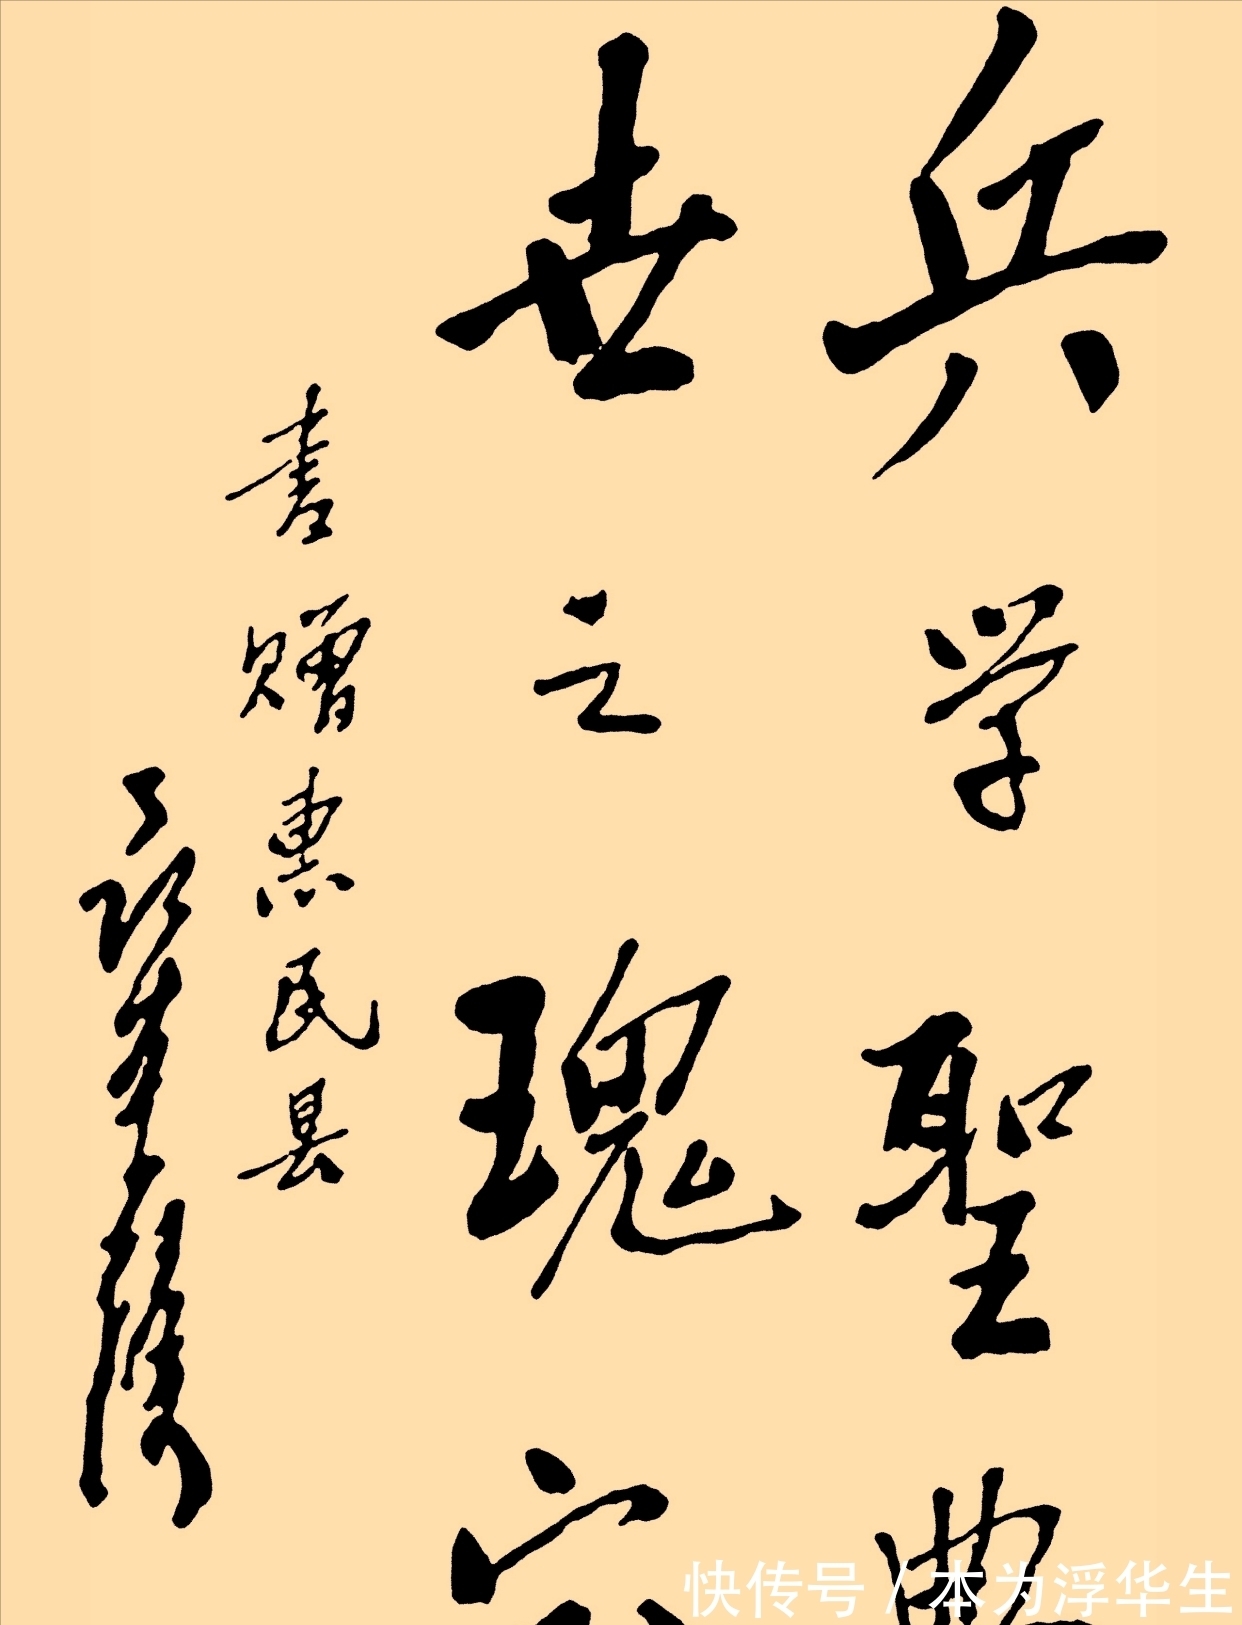 兵学聖典
世之瑰宝
书赠惠民县
快传号 / 本为浮华生